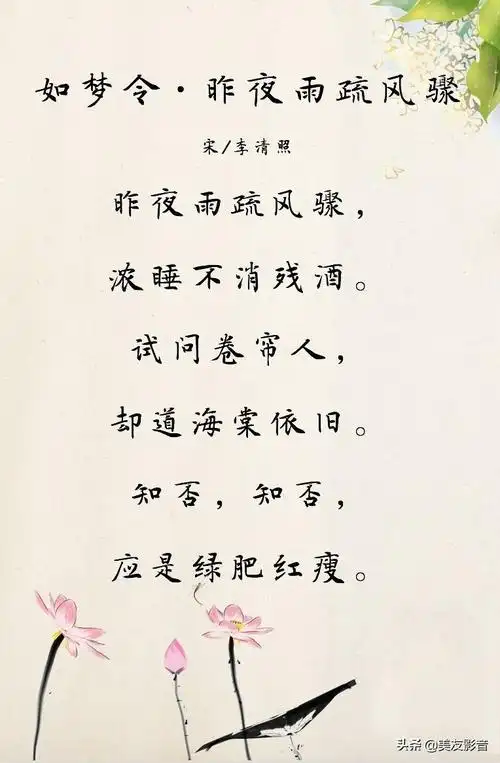 如梦令·昨夜雨疏风骤
宋/李清照
昨夜雨疏风骤，
浓睡不消残酒。
试问卷帘人，
却道海棠依旧。
知否，知否，
应是绿肥红瘦。
头条 @美友影音